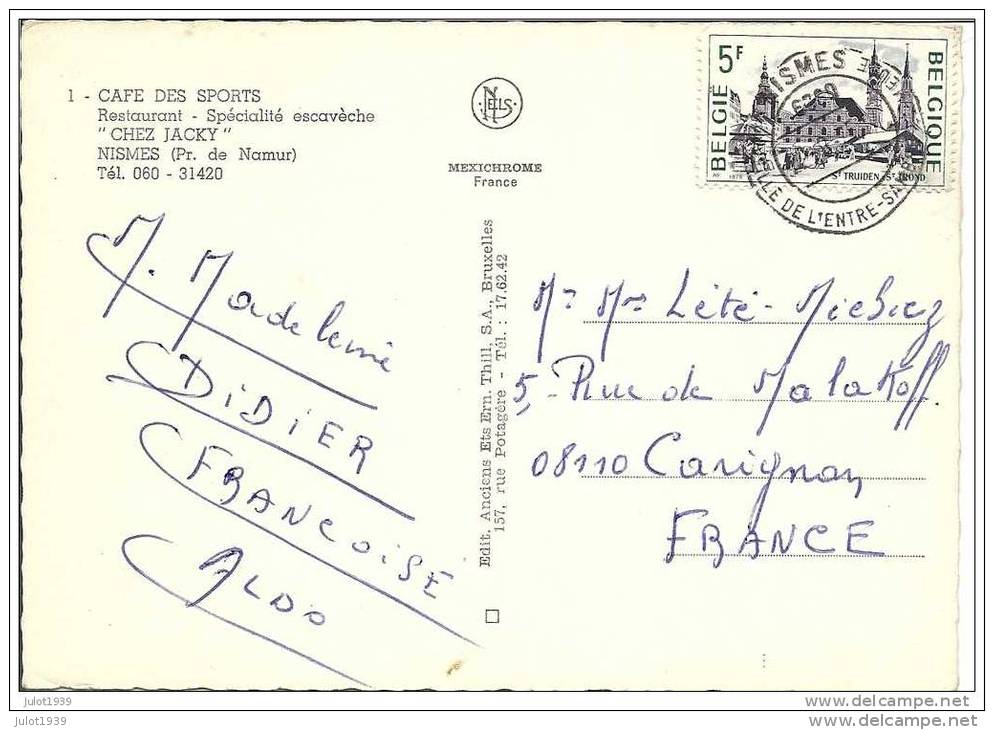 1 - CAFE DES SPORTS
Restaurant - Spécialité escavèche
" CHEZ JACKY "
NISMES (Pr. de Namur)
Tél. 060 - 31420
NELS
MEXICHROME
France
5F
BELGIË
BELGIQUE
ST TRUIDEN (ST TROND)
NISMES
DE L'ENTRE-SAMBRE
M. Madeleine
DIDIER
FRANCOISE
ALDO
Edit. Anciens Ets Ern. Thill, S.A., Bruxelles
157, rue Potagère - Tél. : 17.62.42
Mr Mme Lété - Miehiez
5, - Rue de Malakoff.
08110 Carignan
FRANCE
julot1939
julot1939
www.delcampe.net
www.delcampe.net